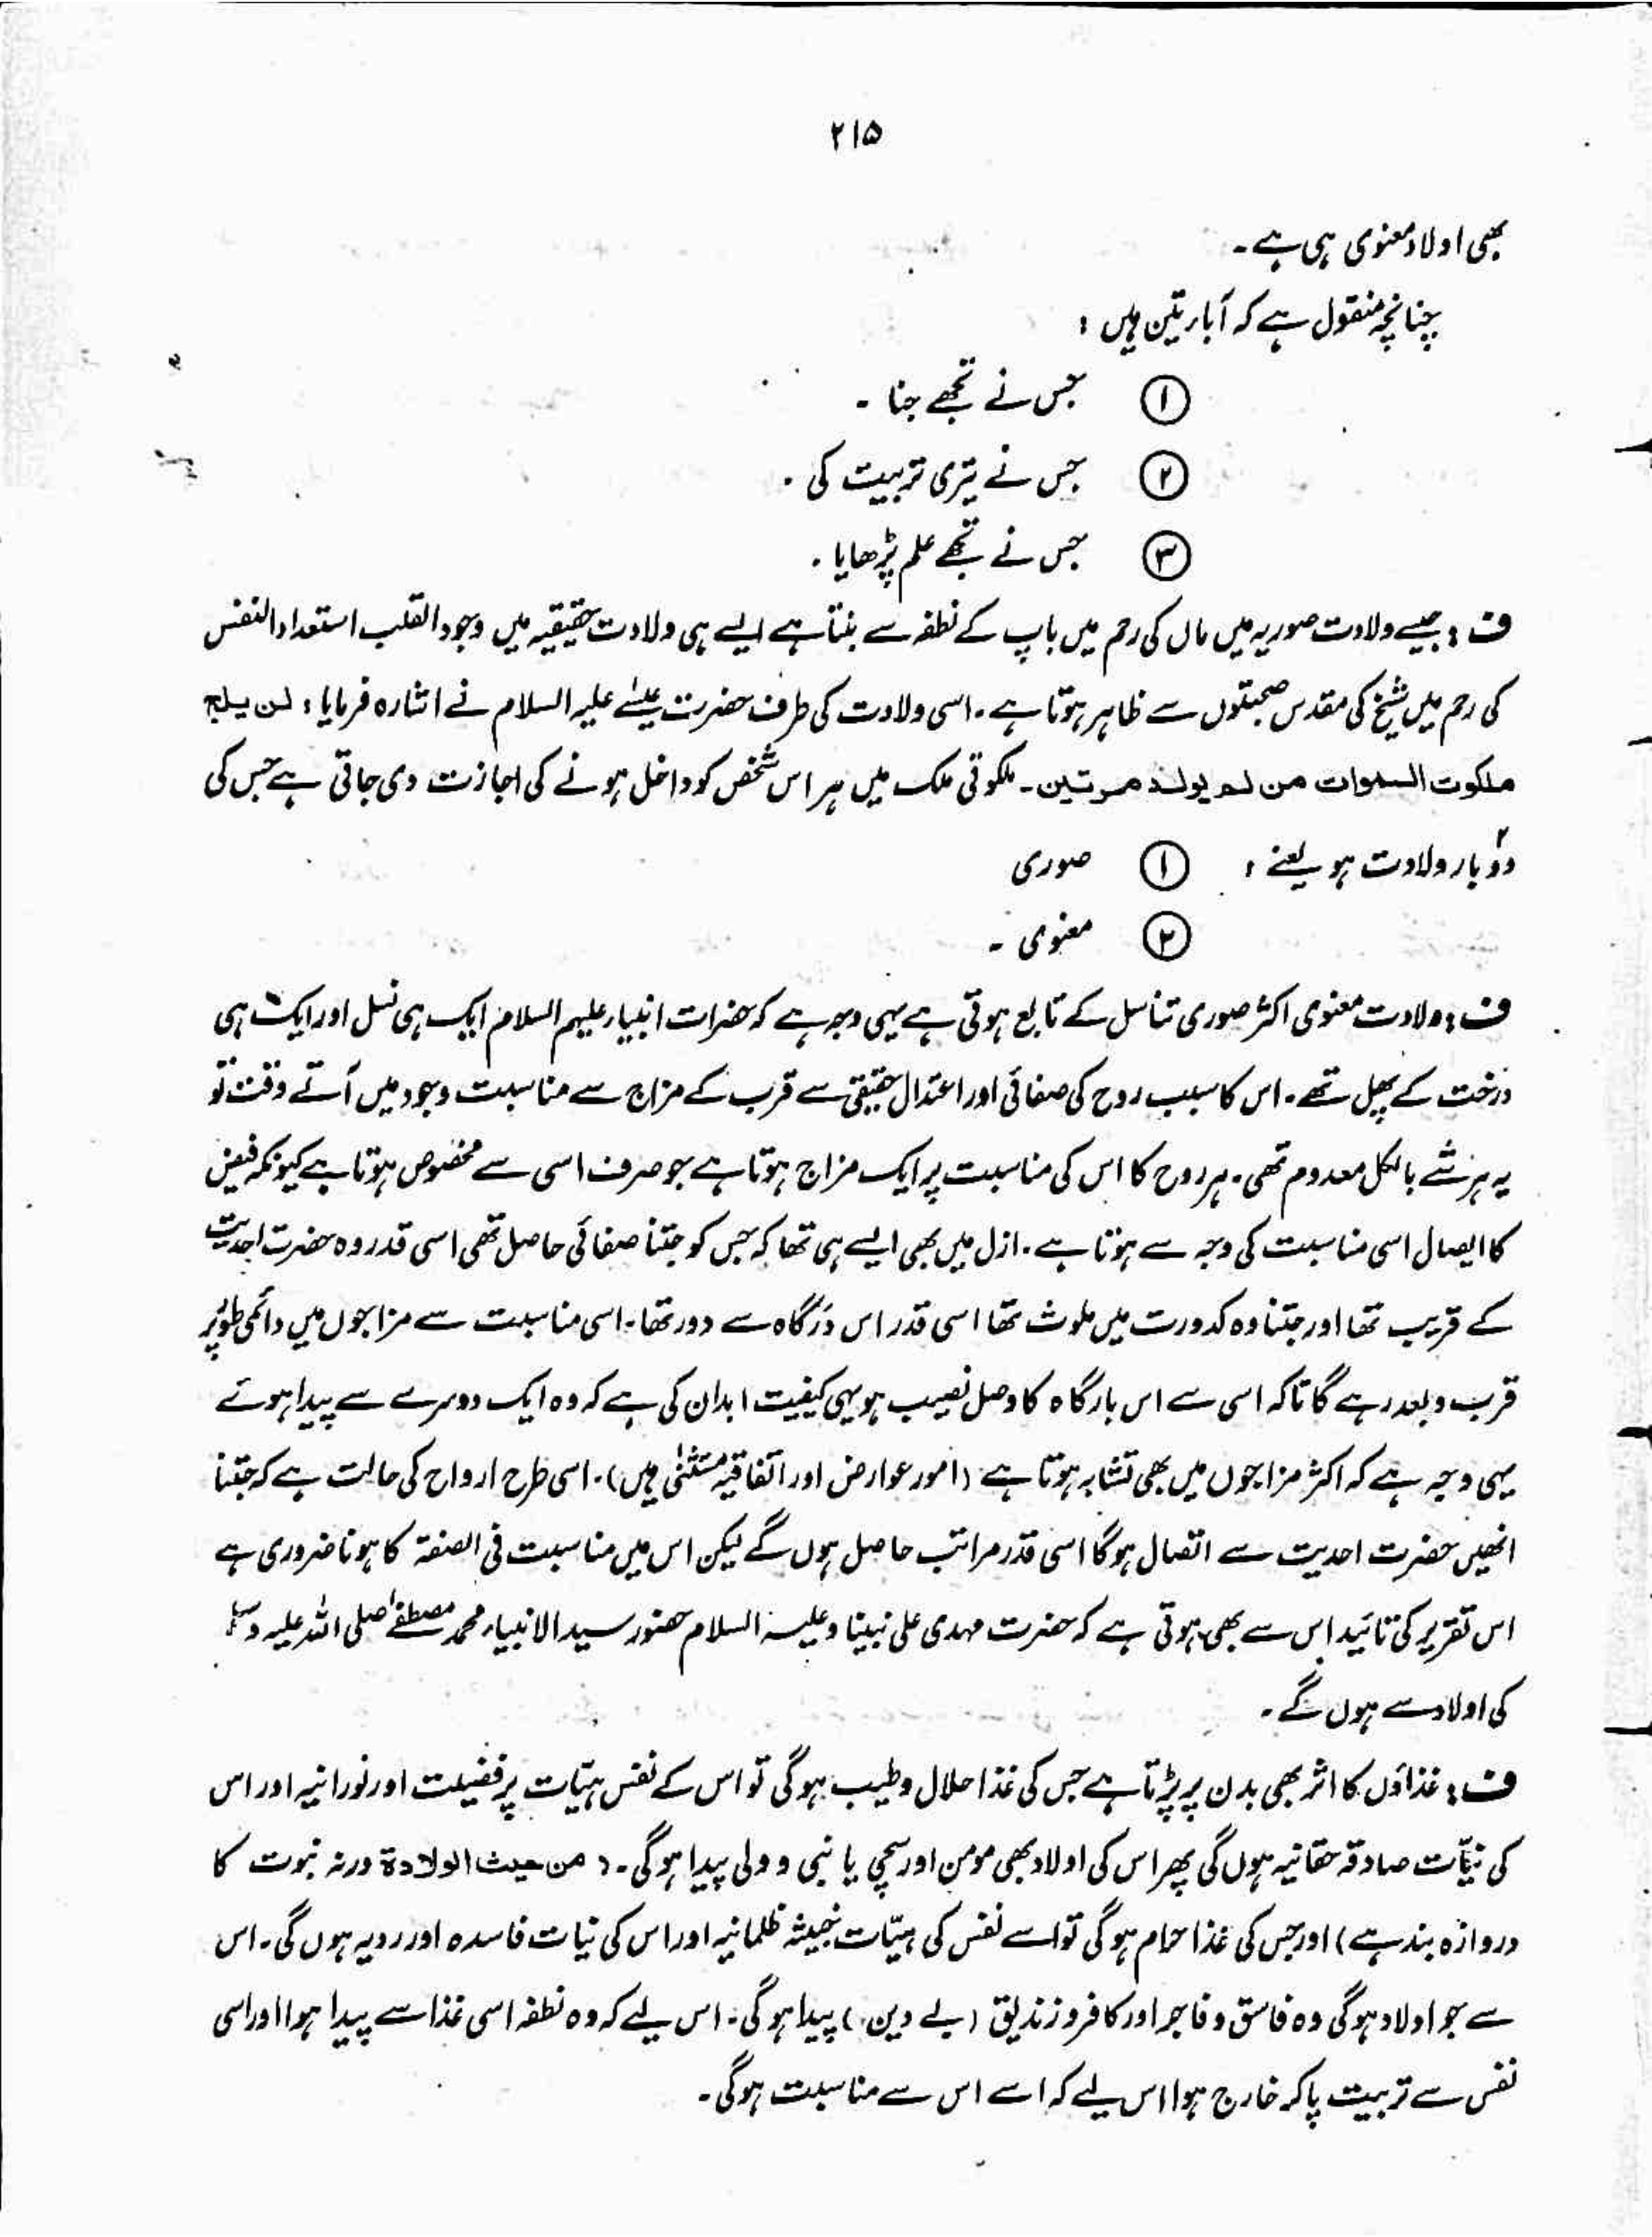 ۲۱۵
بھی اولاد معنوی ہی ہے۔
چنانچہ منقول ہے کہ آباء تین ہیں :
① جس نے تجھے جنا ۔
② جس نے تیری تربیت کی ۔
③ جس نے تجھے علم پڑھایا ۔
ف : جیسے ولادت صوریہ میں ماں کی رحم میں باپ کے نطفہ سے بنتا ہے ایسے ہی ولادت حقیقیہ میں وجود القلب استعداد النفس
کی رحم میں شیخ کی مقدس صحبتوں سے ظاہر ہوتا ہے۔ اسی ولادت کی طرف حضرت عیسٰے علیہ السلام نے اشارہ فرمایا : لن یلج
ملکوت السلوات من لم یولد مرتین۔ ملکوتی ملک میں ہر اس شخص کو داخل ہونے کی اجازت دی جاتی ہے جس کی
دو۲ بار ولادت ہو یعنے : ① صوری
② معنوی ۔
ف : ولادت معنوی اکثر صوری تناسل کے تابع ہوتی ہے یہی وجہ ہے کہ حضرات انبیاء علیہم السلام ایک ہی نسل اور ایک ہی
درخت کے پھل تھے۔ اس کا سبب روح کی صفائی اور اعتدال حقیقی سے قرب کے مزاج سے مناسبت وجود میں آتے وقت تو
یہ ہر شے بالکل معدوم تھی۔ ہر روح کا اس کی مناسبت پر ایک مزاج ہوتا ہے جو صرف اسی سے مخصوص ہوتا ہے کیونکہ فیض
کا ایصال اسی مناسبت کی وجہ سے ہوتا ہے۔ ازل میں بھی ایسے ہی تھا کہ جس کو جتنا صفائی حاصل تھی اسی قدر وہ حضرت احدیت
کے قریب تھا اور جتنا وہ کدورت میں ملوث تھا اسی قدر اس درگاہ سے دور تھا۔ اسی مناسبت سے مزاجوں میں دائمی طور پر
قرب و بعد رہے گا تاکہ اسی سے اس بارگاہ کا وصل نصیب ہو یہی کیفیت ابدان کی ہے کہ وہ ایک دوسرے سے پیدا ہوئے
یہی وجہ ہے کہ اکثر مزاجوں میں بھی تشابہ ہوتا ہے (امور عوارض اور اتفاقیہ مستثنٰی ہیں)۔ اسی طرح ارواح کی حالت ہے کہ جتنا
انھیں حضرت احدیت سے اتصال ہوگا اسی قدر مراتب حاصل ہوں گے لیکن اس میں مناسبت فی الصفۃ کا ہونا ضروری ہے
اس تقریر کی تائید اس سے بھی ہوتی ہے کہ حضرت مہدی علی نبینا وعلیہ السلام حضور سید الانبیاء محمد مصطفےٰ صلی اللہ علیہ وسلم
کی اولاد سے ہوں گے۔
ف : غذاؤں کا اثر بھی بدن پر پڑتا ہے جس کی غذا حلال و طیب ہوگی تو اس کے نفس ہیّات پر فضیلت اور نورانیہ اور اس
کی نیّات صادقہ حقانیہ ہوں گی پھر اس کی اولاد بھی مومن اور سچی یا نبی و ولی پیدا ہوگی۔ ( من حیث الولادۃ ورنہ نبوت کا
دروازہ بند ہے) اور جس کی غذا حرام ہوگی تو اسے نفس کی ہیّات خبیثہ ظلمانیہ اور اس کی نیات فاسدہ اور ردیہ ہوں گی۔ اس
سے جو اولاد ہوگی وہ فاسق و فاجر اور کافر و زندیق (بے دین) پیدا ہوگی۔ اس لیے کہ وہ نطفہ اسی غذا سے پیدا ہوا اور اسی
نفس سے تربیت پا کر خارج ہوا اس لیے کہ اسے اس سے مناسبت ہوگی۔